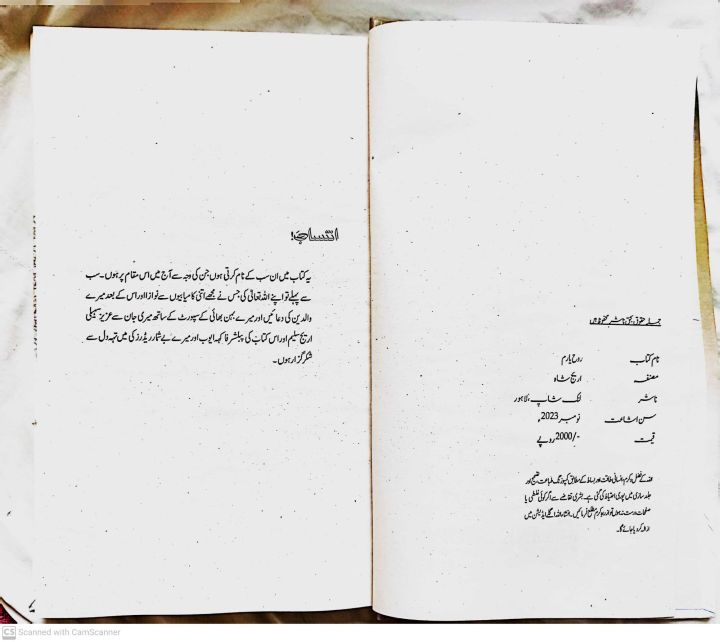 جملہ حقوق بحق ناشر محفوظ ہیں
نام کتاب روح یارم
مصنفہ اریج شاہ
ناشر لنک شاپ، لاہور
سن اشاعت نومبر 2023ء
قیمت 2000/- روپے
اللہ کے فضل و کرم، انسانی طاقت اور بساط کے مطابق کمپوزنگ، طباعت، تصحیح اور
جلد سازی میں پوری احتیاط کی گئی ہے۔ بشری تقاضے سے اگر کوئی غلطی یا
صفحات درست نہ ہوں تو ازراہ کرم مطلع فرمائیں۔ انشاء اللہ اگلے ایڈیشن میں
ازالہ کر دیا جائے گا۔
انتساب!
یہ کتاب میں ان سب کے نام کرتی ہوں جن کی وجہ سے آج میں اس مقام پر ہوں۔ سب
سے پہلے تو اپنے اللہ تعالیٰ کی جس نے مجھے اتنی کامیابیوں سے نوازا اور اس کے بعد میرے
والدین کی دعائیں اور میرے بہن بھائی کے سپورٹ کے ساتھ میری جان سے عزیز سہیلی
اریج سلیم اور اس کتاب کی پبلشر فاکہہ ایوب اور میرے بے شمار ریڈرز کی میں تہہ دل سے
شکر گزار ہوں۔
CS Scanned with CamScanner